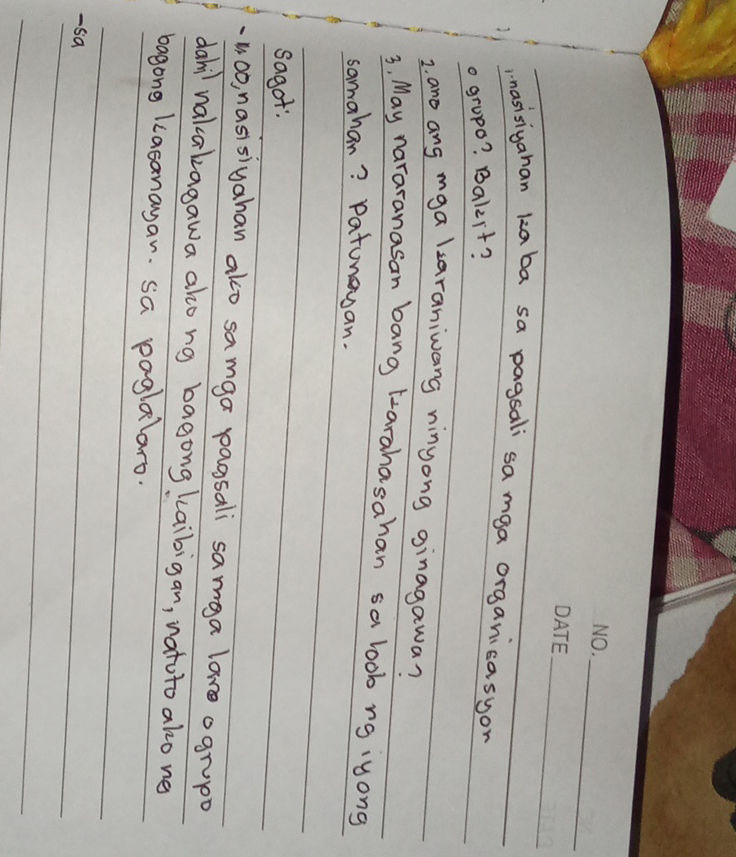 NO.
DATE
1. nasisiyahan ka ba sa pagsali sa mga organisasyon
o grupo? Bakit?
2. ano ang mga karaniwang ninyong ginagawa?
3. May nararanasan bang karahasahan sa loob ng iyong
samahan? Patunayan.
Sagot:
- 1. oo, nasisiyahan ako sa mga pagsali sa mga laro o grupo
dahil nakakagawa ako ng bagong kaibigan, natuto ako ng
bagong kasanayan. sa paglalaro.
-sa